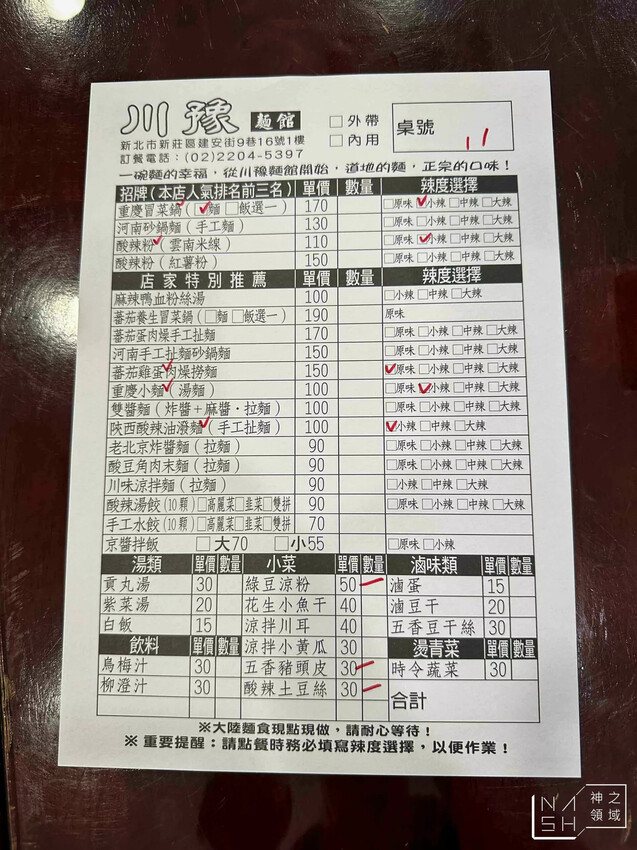 川豫 麵館
□外帶
□內用
桌號 11
新北市新莊區建安街9巷16號1樓
訂餐電話：(02)2204-5397
一碗麵的幸福，從川豫麵館開始，道地的麵，正宗的口味！
招牌(本店人氣排名前三名) 單價 數量 辣度選擇
重慶冒菜鍋(☑麵 □飯選一) 170 □原味 ☑小辣 □中辣 □大辣
河南砂鍋麵(手工麵) 130 □原味 □小辣 □中辣 □大辣
酸辣粉✓(雲南米線) 110 □原味 ☑小辣 □中辣 □大辣
酸辣粉(紅薯粉) 150 □原味 □小辣 □中辣 □大辣
店家特別推薦 單價 數量 辣度選擇
麻辣鴨血粉絲湯 100 □小辣 □中辣 □大辣
蕃茄養生冒菜鍋(□麵 □飯選一) 190 原味
蕃茄蛋肉燥手工扯麵 170 □原味 □小辣 □中辣 □大辣
河南手工扯麵砂鍋麵 150 □原味 □小辣 □中辣 □大辣
蕃茄雞蛋肉燥撈麵 150 ☑原味 □小辣 □中辣 □大辣
重慶小麵✓(湯麵) 100 □原味 ☑小辣 □中辣 □大辣
雙醬麵(炸醬+麻醬·拉麵) 100 □原味 □小辣 □中辣 □大辣
陝西酸辣油潑麵✓(手工扯麵) 100 ☑小辣 □中辣 □大辣
老北京炸醬麵(拉麵) 90 □原味 □小辣 □中辣 □大辣
酸豆角肉末麵(拉麵) 90 □原味 □小辣 □中辣 □大辣
川味涼拌麵(拉麵) 90 □小辣 □中辣 □大辣
酸辣湯餃(10顆)□高麗菜□韭菜□雙拼 90 □原味 □小辣 □中辣 □大辣
手工水餃(10顆)□高麗菜□韭菜□雙拼 70
京醬拌飯 □大70 □小55 □原味 □小辣
湯類 單價 數量 小菜 單價 數量 滷味類 單價 數量
貢丸湯 30 綠豆涼粉 50 一 滷蛋 15
紫菜湯 20 花生小魚干 40 滷豆干 20
白飯 15 涼拌川耳 40 五香豆干絲 30
飲料 單價 數量 涼拌小黃瓜 30 燙青菜 單價 數量
烏梅汁 30 五香豬頭皮 30 一 時令蔬菜 30
柳澄汁 30 酸辣土豆絲 30 一 合計
※大陸麵食現點現做，請耐心等待！
※ 重要提醒：請點餐時務必填寫辣度選擇，以便作業！
NASH 神之領域